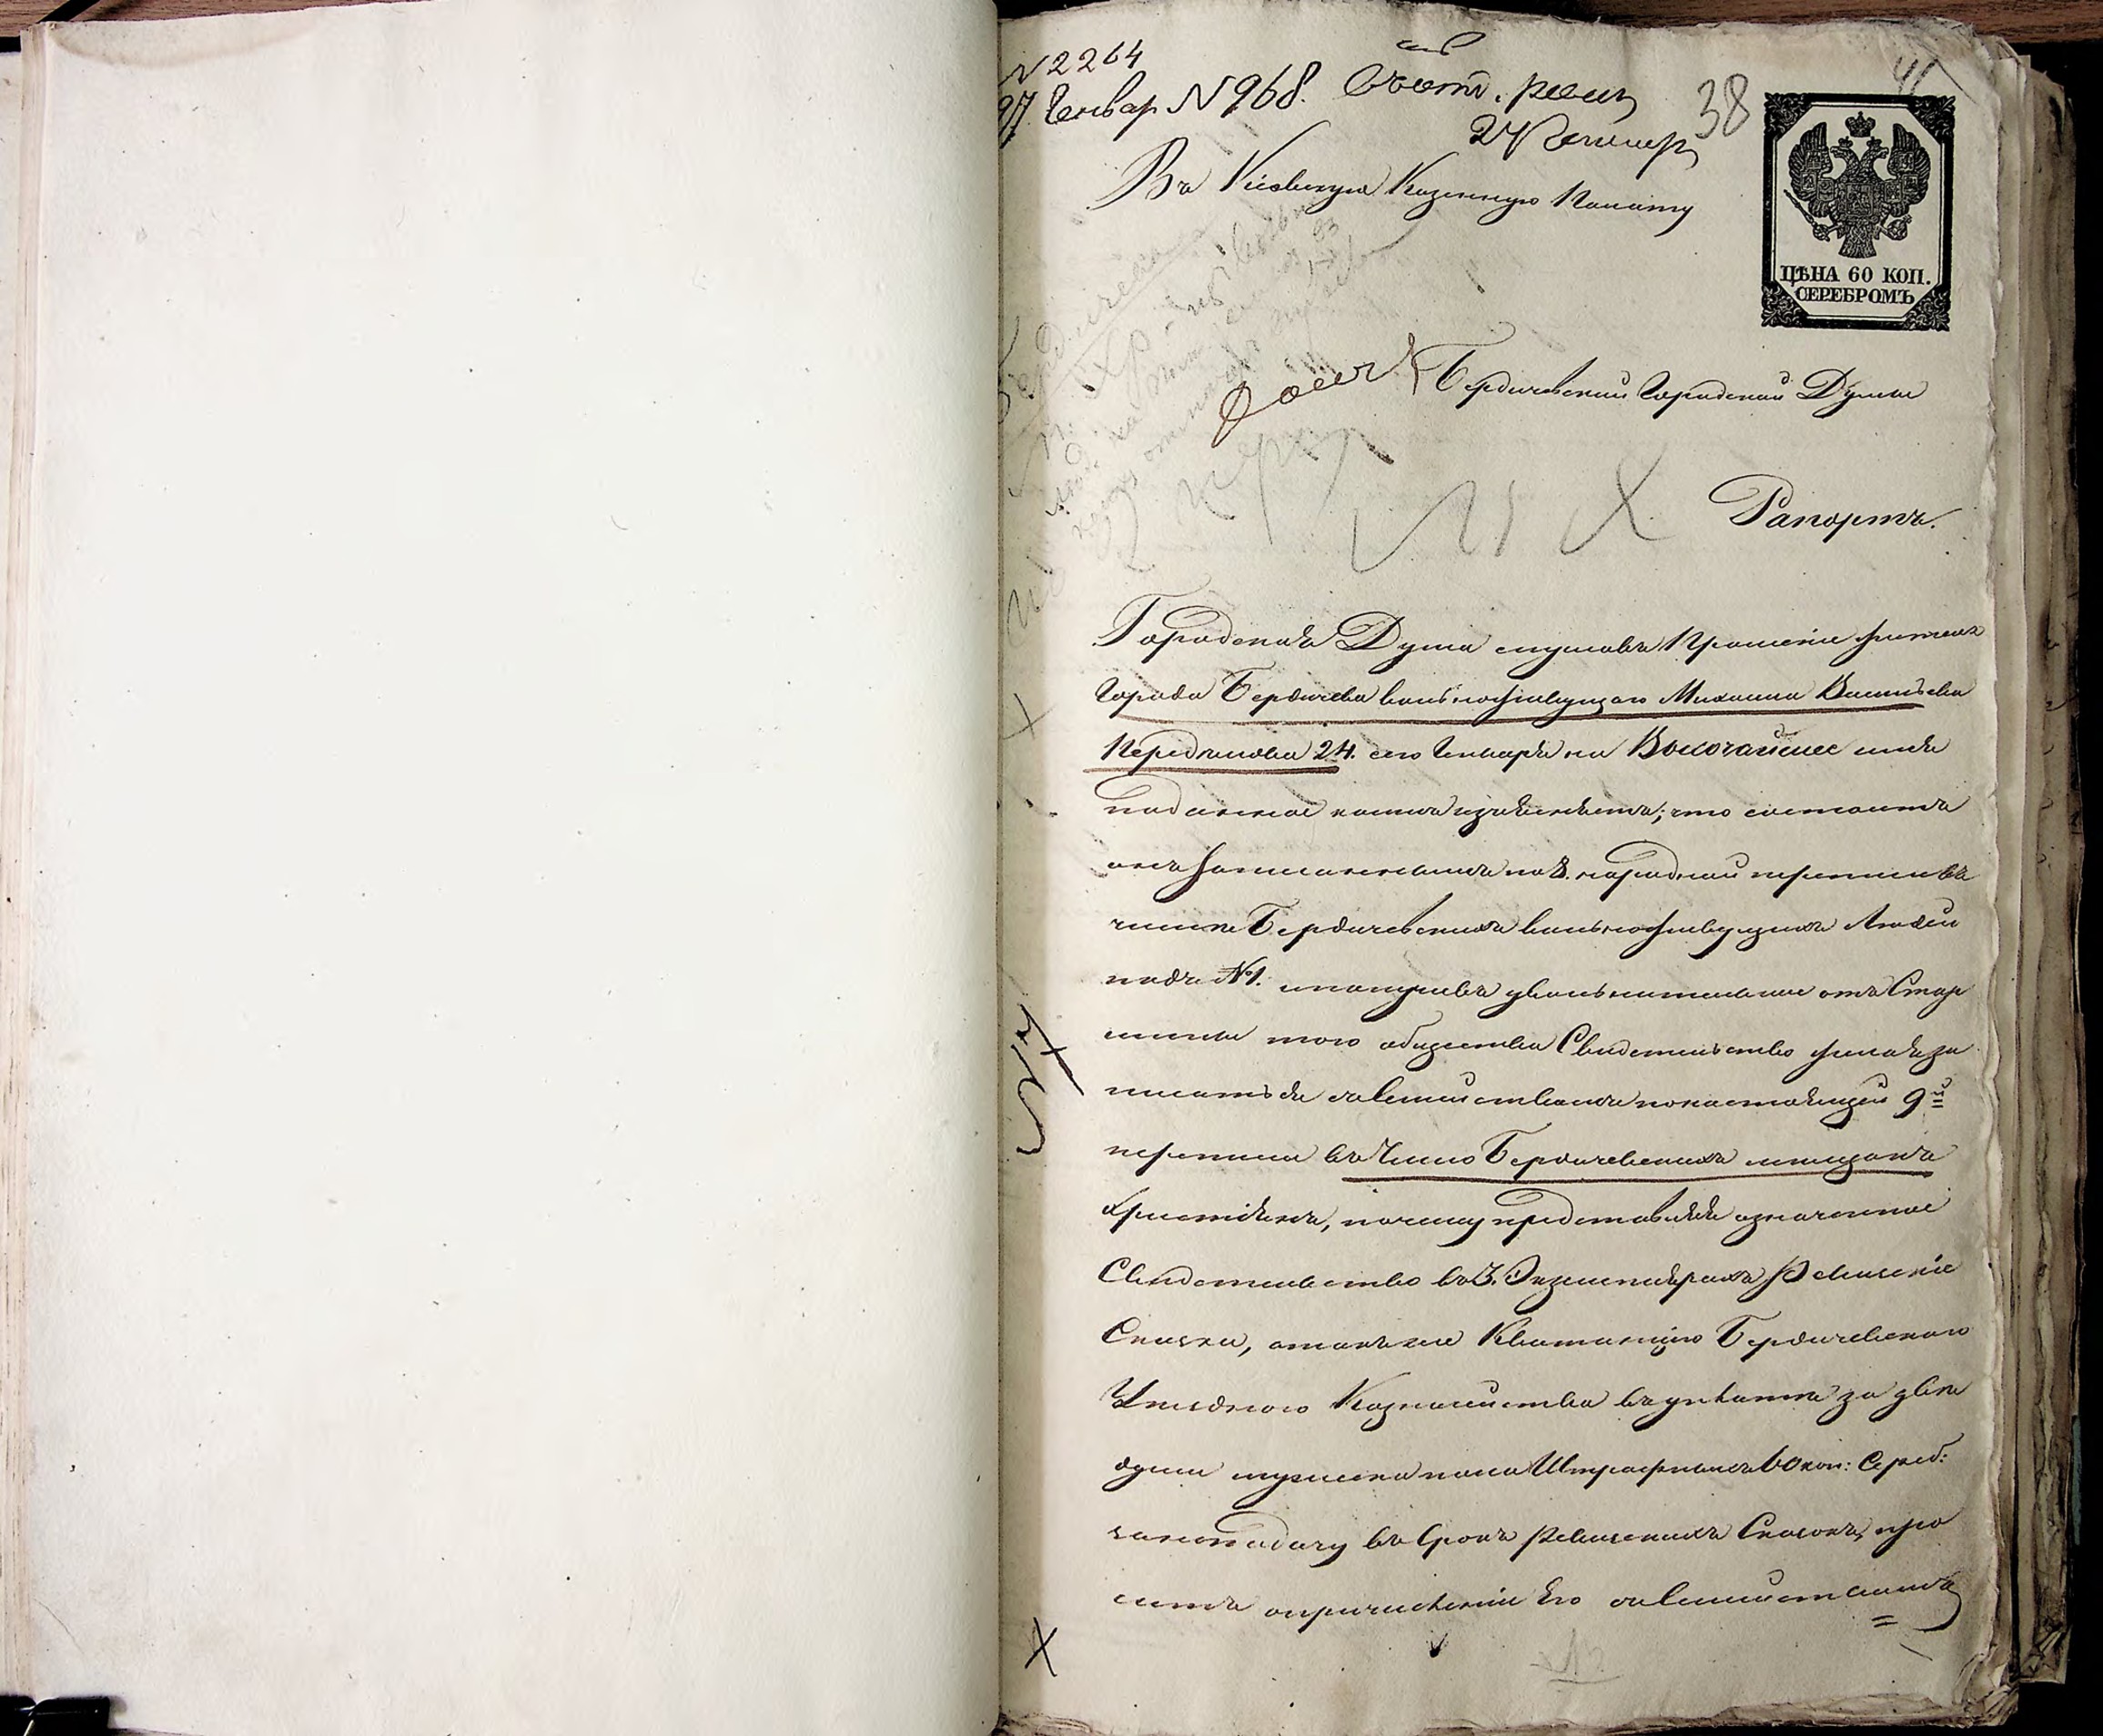 № 2264
27 Генвар № 968.
38
41
Въ Кіевскую Казенную Палату
ЦѢНА 60 КОП.
СЕРЕБРОМЪ
Бердичевской Городской Думы
Рапортъ.
Городская Дума слушавъ прошеніе жителя
города Бердичева вольноживущаго Михаила Васильева
24. сего Генваря на Высочайшее имя
поданное коимъ изъясняетъ; что состоитъ
онъ записаннымъ по 8. народной переписи въ
числе Бердичевскихъ вольноживущихъ людей
подъ №1. и получивъ увольнительное отъ Стар
шины того общества Свидетельство желая за
писаться съ семействомъ по настоящей 9й
переписи въ число Бердичевскихъ мещанъ
Христіянъ, почему представляя означенное
Свидетельство въ 3. Экземплярахъ Ревизскіе
Сказки, а также Квитанцію Бердичевского
Уезднаго Казначейства въ уплате за две
души мужеска пола Штрафныхъ 60 коп: Сереб:
за неподачу въ срокъ Ревизскихъ Сказокъ, про
ситъ о причисленіи Его съ семействомъ